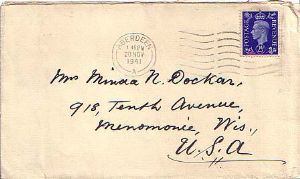 ABERDEEN
1 45 PM
20 NOV
1941
POSTAGE
REVENUE
Mrs Minda N. Dockar,
918, Tenth Avenue,
Menomonie, Wis.,
U.S.A